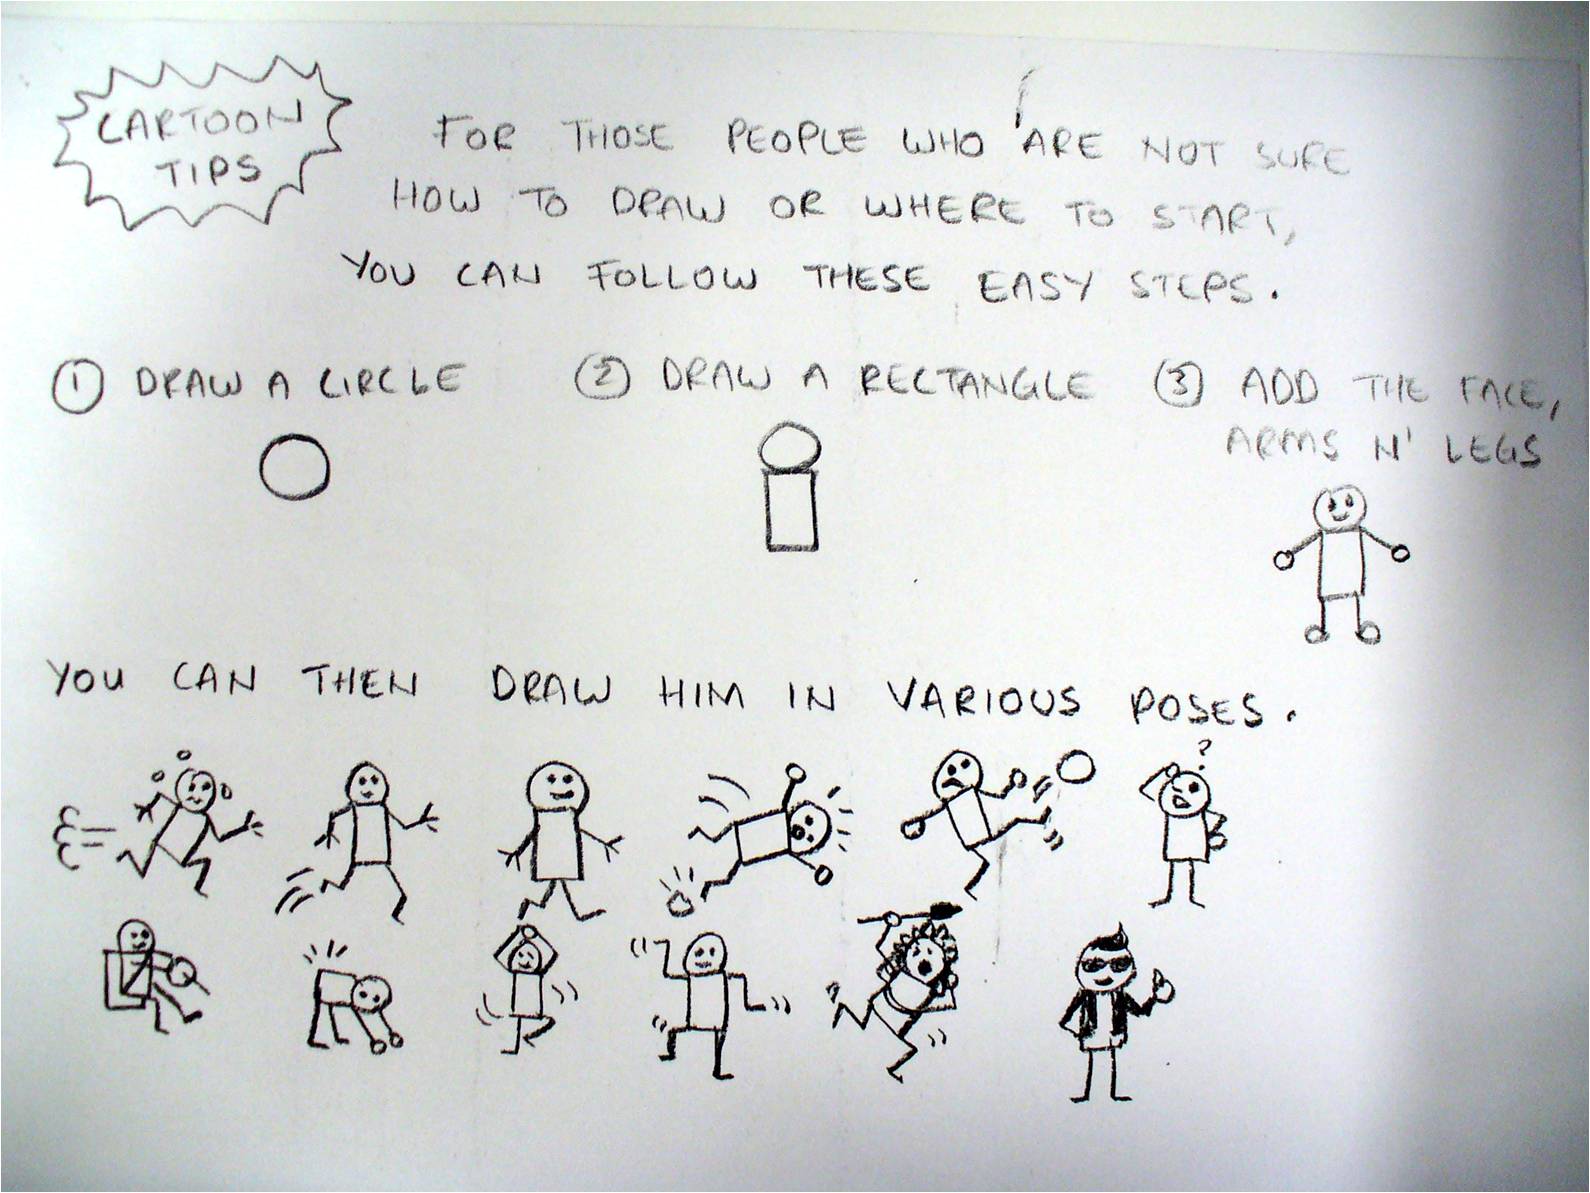 CARTOON
TIPS
FOR THOSE PEOPLE WHO ARE NOT SURE
HOW TO DRAW OR WHERE TO START,
YOU CAN FOLLOW THESE EASY STEPS.
1 DRAW A CIRCLE
2 DRAW A RECTANGLE
3 ADD THE FACE,
ARMS N' LEGS
YOU CAN THEN DRAW HIM IN VARIOUS POSES.
?